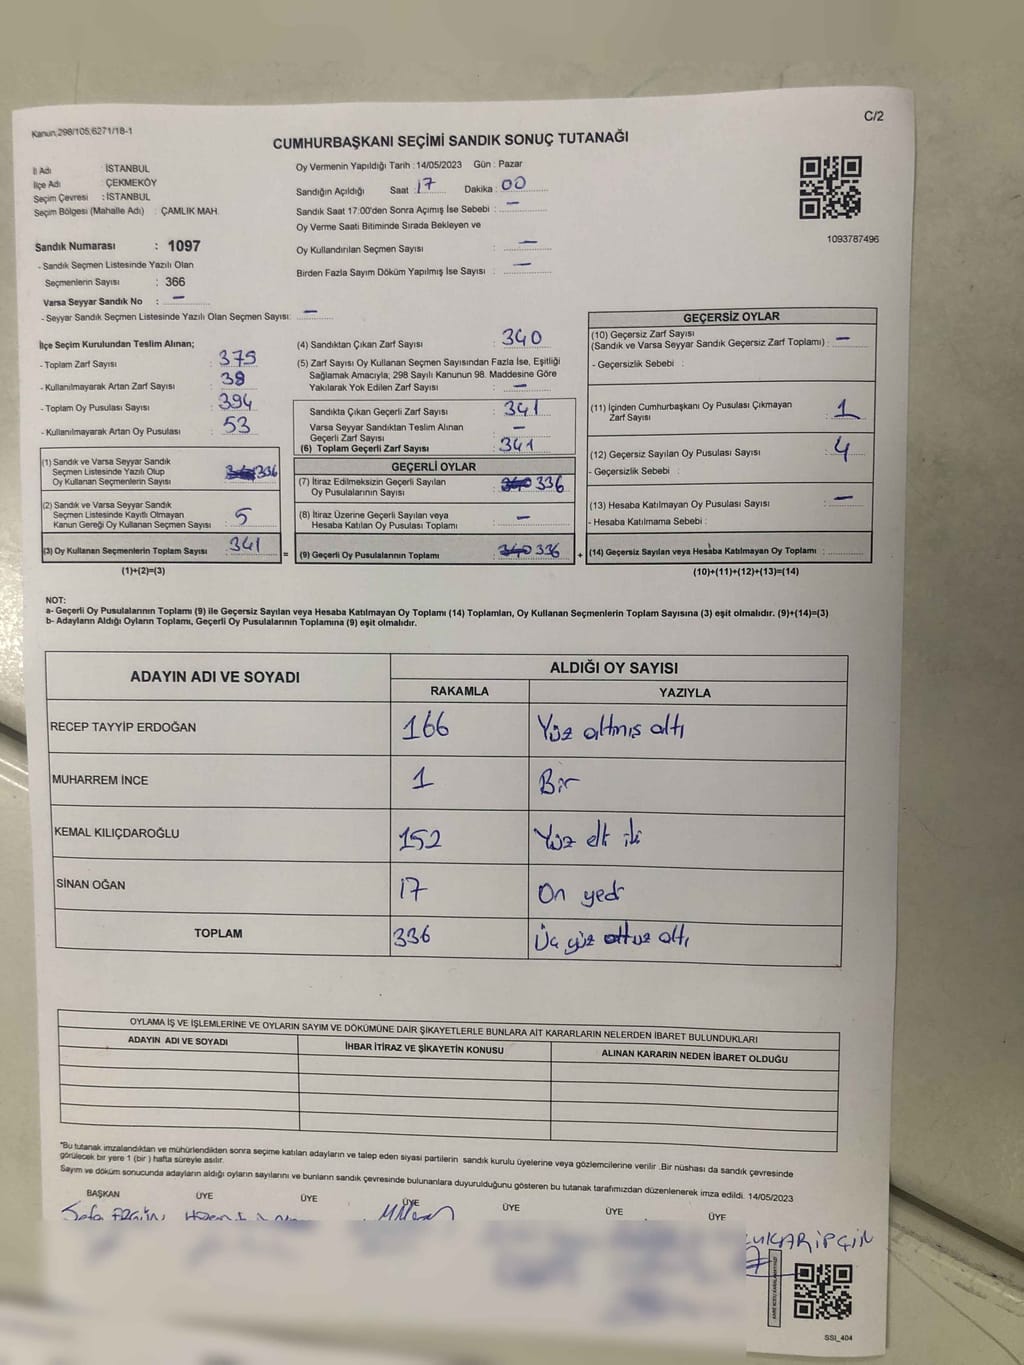 Kanun;298/105;6271/18-1
C/2
CUMHURBAŞKANI SEÇİMİ SANDIK SONUÇ TUTANAĞI
İl Adı : İSTANBUL
İlçe Adı : ÇEKMEKÖY
Seçim Çevresi : İSTANBUL
Seçim Bölgesi (Mahalle Adı) : ÇAMLIK MAH.
Oy Vermenin Yapıldığı Tarih : 14/05/2023 Gün : Pazar
Sandığın Açıldığı Saat : 17 Dakika : 00
Sandık Saat 17:00'den Sonra Açımış İse Sebebi : —
Oy Verme Saati Bitiminde Sırada Bekleyen ve
Oy Kullandırılan Seçmen Sayısı : —
Birden Fazla Sayım Döküm Yapılmış İse Sayısı : —
1093787496
Sandık Numarası : 1097
- Sandık Seçmen Listesinde Yazılı Olan
Seçmenlerin Sayısı : 366
Varsa Seyyar Sandık No : —
- Seyyar Sandık Seçmen Listesinde Yazılı Olan Seçmen Sayısı: —
İlçe Seçim Kurulundan Teslim Alınan;
- Toplam Zarf Sayısı : 375
- Kullanılmayarak Artan Zarf Sayısı : 39
- Toplam Oy Pusulası Sayısı : 394
- Kullanılmayarak Artan Oy Pusulası : 53
(1) Sandık ve Varsa Seyyar Sandık
Seçmen Listesinde Yazılı Olup
Oy Kullanan Seçmenlerin Sayısı : 336
(2) Sandık ve Varsa Seyyar Sandık
Seçmen Listesinde Kayıtlı Olmayan
Kanun Gereği Oy Kullanan Seçmen Sayısı : 5
(3) Oy Kullanan Seçmenlerin Toplam Sayısı : 341
(1)+(2)=(3)
(4) Sandıktan Çıkan Zarf Sayısı : 340
(5) Zarf Sayısı Oy Kullanan Seçmen Sayısından Fazla İse, Eşitliği
Sağlamak Amacıyla; 298 Sayılı Kanunun 98. Maddesine Göre
Yakılarak Yok Edilen Zarf Sayısı : —
Sandıkta Çıkan Geçerli Zarf Sayısı : 341
Varsa Seyyar Sandıktan Teslim Alınan
Geçerli Zarf Sayısı : —
(6) Toplam Geçerli Zarf Sayısı : 341
GEÇERLİ OYLAR
(7) İtiraz Edilmeksizin Geçerli Sayılan
Oy Pusulalarının Sayısı : 340 336
(8) İtiraz Üzerine Geçerli Sayılan veya
Hesaba Katılan Oy Pusulası Toplamı : —
(9) Geçerli Oy Pusulalarının Toplamı : 340 336
=
+
GEÇERSİZ OYLAR
(10) Geçersiz Zarf Sayısı
(Sandık ve Varsa Seyyar Sandık Geçersiz Zarf Toplamı) : —
- Geçersizlik Sebebi :
(11) İçinden Cumhurbaşkanı Oy Pusulası Çıkmayan
Zarf Sayısı : 1
(12) Geçersiz Sayılan Oy Pusulası Sayısı : 4
- Geçersizlik Sebebi :
(13) Hesaba Katılmayan Oy Pusulası Sayısı : —
- Hesaba Katılmama Sebebi :
(14) Geçersiz Sayılan veya Hesaba Katılmayan Oy Toplamı :
(10)+(11)+(12)+(13)=(14)
NOT:
a- Geçerli Oy Pusulalarının Toplamı (9) ile Geçersiz Sayılan veya Hesaba Katılmayan Oy Toplamı (14) Toplamları, Oy Kullanan Seçmenlerin Toplam Sayısına (3) eşit olmalıdır. (9)+(14)=(3)
b- Adayların Aldığı Oyların Toplamı, Geçerli Oy Pusulalarının Toplamına (9) eşit olmalıdır.
ADAYIN ADI VE SOYADI
ALDIĞI OY SAYISI
RAKAMLA YAZIYLA
RECEP TAYYİP ERDOĞAN 166 Yüz altmış altı
MUHARREM İNCE 1 Bir
KEMAL KILIÇDAROĞLU 152 Yüz elli iki
SİNAN OĞAN 17 On yedi
TOPLAM 336 Üç yüz otuz altı
OYLAMA İŞ VE İŞLEMLERİNE VE OYLARIN SAYIM VE DÖKÜMÜNE DAİR ŞİKAYETLERLE BUNLARA AİT KARARLARIN NELERDEN İBARET BULUNDUKLARI
ADAYIN ADI VE SOYADI İHBAR İTİRAZ VE ŞİKAYETİN KONUSU ALINAN KARARIN NEDEN İBARET OLDUĞU
*Bu tutanak imzalandıktan ve mühürlendikten sonra seçime katılan adayların ve talep eden siyasi partilerin sandık kurulu üyelerine veya gözlemcilerine verilir .Bir nüshası da sandık çevresinde
görülecek bir yere 1 (bir ) hafta süreyle asılır.
Sayım ve döküm sonucunda adayların aldığı oyların sayılarını ve bunların sandık çevresinde bulunanlara duyurulduğunu gösteren bu tutanak tarafımızdan düzenlenerek imza edildi. 14/05/2023
BAŞKAN ÜYE ÜYE ÜYE ÜYE ÜYE ÜYE
SSI_404